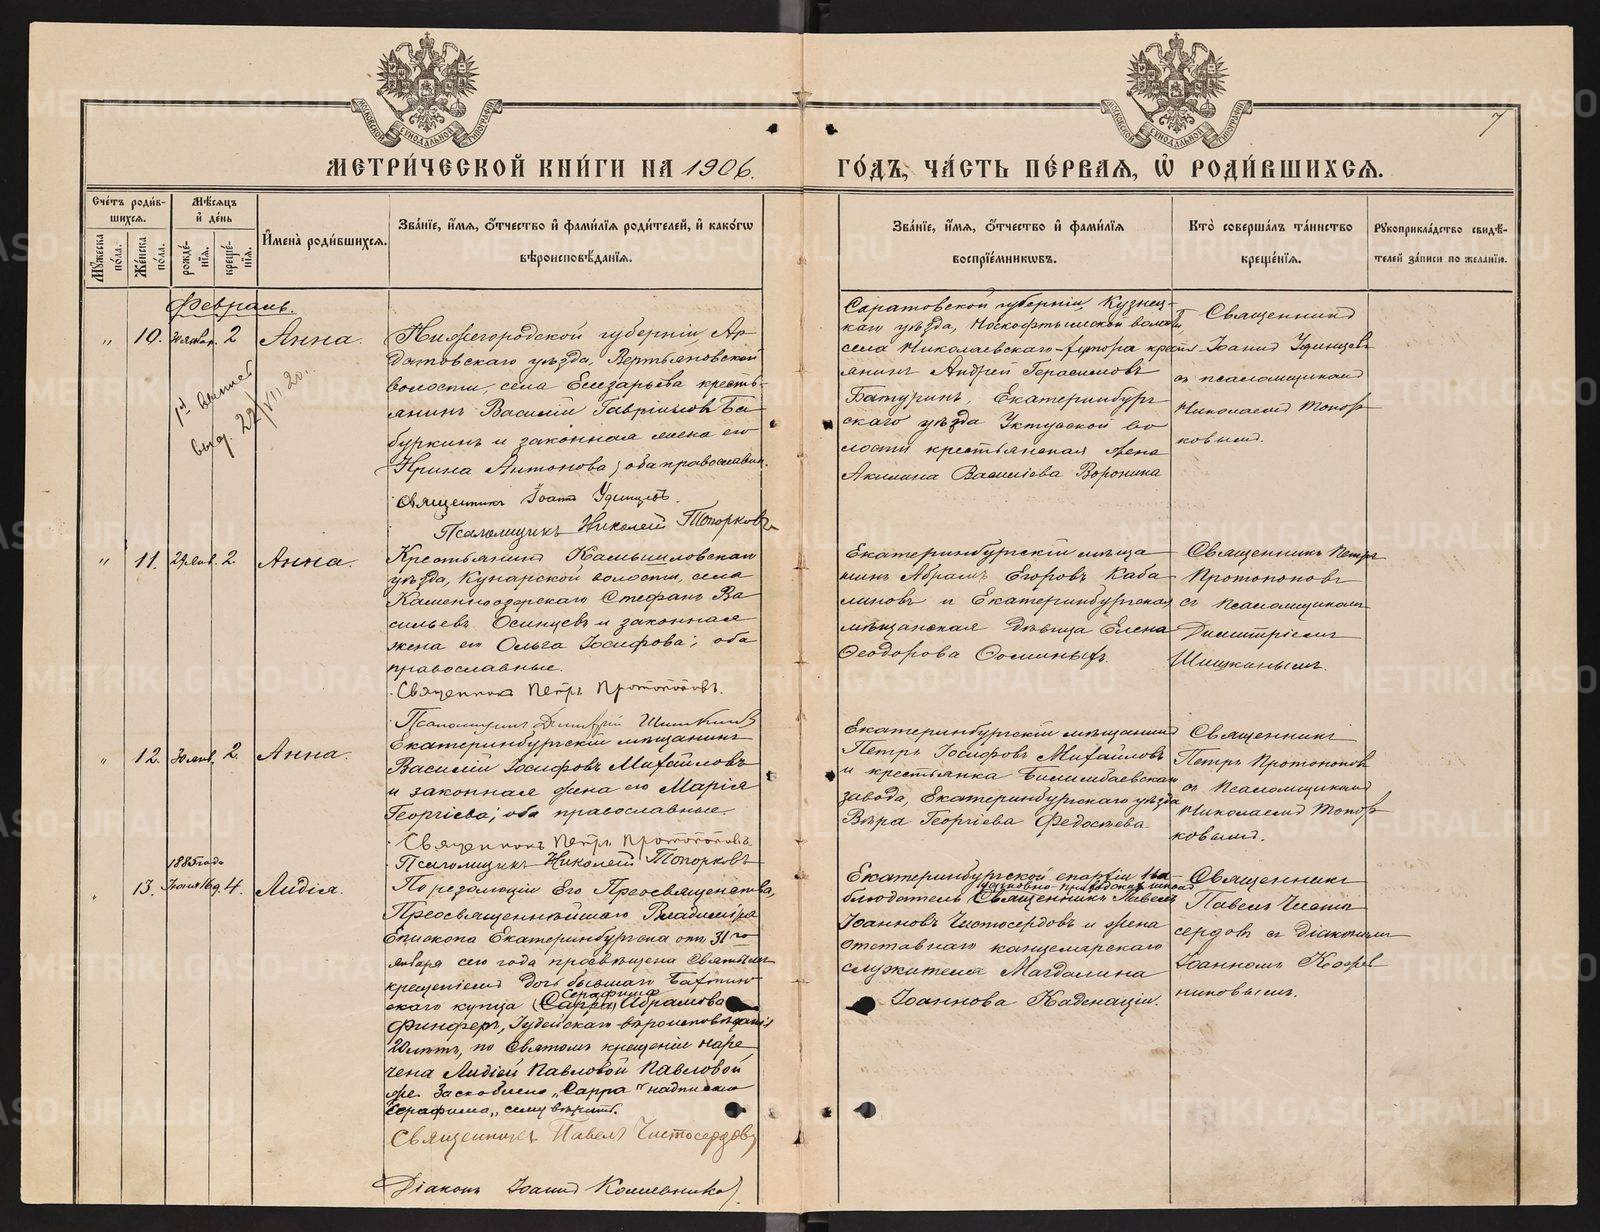 МОСКОВСКОЙ СѴНОДАЛЬНОЙ ТИПОГРАФІИ
МОСКОВСКОЙ СѴНОДАЛЬНОЙ ТИПОГРАФІИ
7
МЕТРИ́ЧЕСКОЙ КНИ́ГИ НА 1906.
ГО́ДЪ, ЧА́СТЬ ПЕ́РВАѦ, Ѡ҆ РОДИ́ВШИХСѦ.
Сче́тъ роди́в-
шихсѧ.
Мꙋ́жеска по́ла.
Же́нска по́ла.
Мѣ́сѧцъ
и҆ де́нь
рожде́-
нїѧ.
креще́-
нїѧ.
И҆мена̀ роди́вшихсѧ.
Зва́нїе, и҆́мѧ, ѻ҆́тчество и҆ фами́лїѧ роди́телей, и҆ како́гѡ
вѣроисповѣ́данїѧ.
Зва́нїе, и҆́мѧ, ѻ҆́тчество и҆ фами́лїѧ
воспрїе́мникѡвъ.
Кто̀ соверша́лъ та́инство
креще́нїѧ.
Рꙋкоприкла́дство свидѣ́-
телей за́писи по жела́нїю.
Февраль.
" 10. 2 Анна.
Нижегородской губерніи, Ар-
датовскаго уѣзда, Вертьяновской
волости, села Елизарьева кресть-
янинъ Василій Гавріиловъ Ба-
буркинъ и законная жена его
Ирина Антонова; оба православн.
Священникъ Іоаннъ Удинцевъ.
Псаломщикъ Николай Топорковъ
Саратовской губерніи, Кузнец-
каго уѣзда, волости,
села Николаевскаго-хутора крест-
янинъ Андрей Герасимовъ
Батуринъ, Екатеринбург
скаго уѣзда Уктусской во
лости крестьянская жена
Акилина Василіева Воронина
Священникъ
Іоаннъ Удинцевъ
съ псаломщикомъ
Николаемъ Топор
ковымъ.
выд. 22/VII 20.
" 11. 29 янв. 2. Анна.
Крестьянинъ Камышловскаго
уѣзда, Кунарской волости, села
Каменноозерскаго Стефанъ Ва
сильевъ Осинцевъ и законная
жена его Ольга Іосифова; оба
православные.
Священникъ Петръ Протопоповъ.
Псаломщикъ Димитрій Шишкинъ
Екатеринбургскій мѣща
нинъ Абрамъ Егоровъ Каба
линовъ и Екатеринбургская
мѣщанская дѣвица Елена
Ѳеодорова Ѳоминыхъ.
Священникъ Петръ
Протопоповъ
съ псаломщикомъ
Димитріемъ
Шишкинымъ.
" 12. 30 янв. 2. Анна.
Екатеринбургскій мѣщанинъ
Василій Іосифовъ Михайловъ
и законная жена его Марія
Георгіева; оба православные.
Священникъ Петръ Протопоповъ
Псаломщикъ Николай Топорковъ
Екатеринбургскій мѣщанинъ
Петръ Іосифовъ Михайловъ
и крестьянка Билимбаевскаго
завода, Екатеринбургскаго уѣзда
Вѣра Георгіева Федосѣева
Священникъ
Петръ Протопоповъ
съ псаломщикомъ
Николаемъ Топор
ковымъ.
1885 года
" 13. Іюня 16 д. 4. Лидія.
По резолюціи Его Преосвященства,
Преосвященнѣйшаго Владиміра
Епископа Екатеринбургска отъ 31го
января сего года просвѣщена Святымъ
крещеніемъ дочь бывшаго
скаго купца (Сарра) Серафима Абрамова
Финферъ, Іудейскаго вѣроисповѣданія
20 лѣтъ, по Святомъ крещеніи наре
чена Лидіей Павловой Павловой
же. Заскоблено „Сарра" надписано
Серафима„ сему вѣрить.
Священникъ Павелъ Чистосердовъ
Діаконъ Іоаннъ Кожевниковъ.
Екатеринбургской епархіи На-
церковно-приходскихъ школъ
блюдатель Священникъ Павелъ
Іоанновъ Чистосердовъ и жена
отставнаго канцелярскаго
служителя Магдалина
Іоаннова Каденаціи.
Священникъ
Павелъ Чисто
сердовъ съ діакономъ
Іоанномъ Кожев
никовымъ.
METRIKI.GASO-URAL.RU